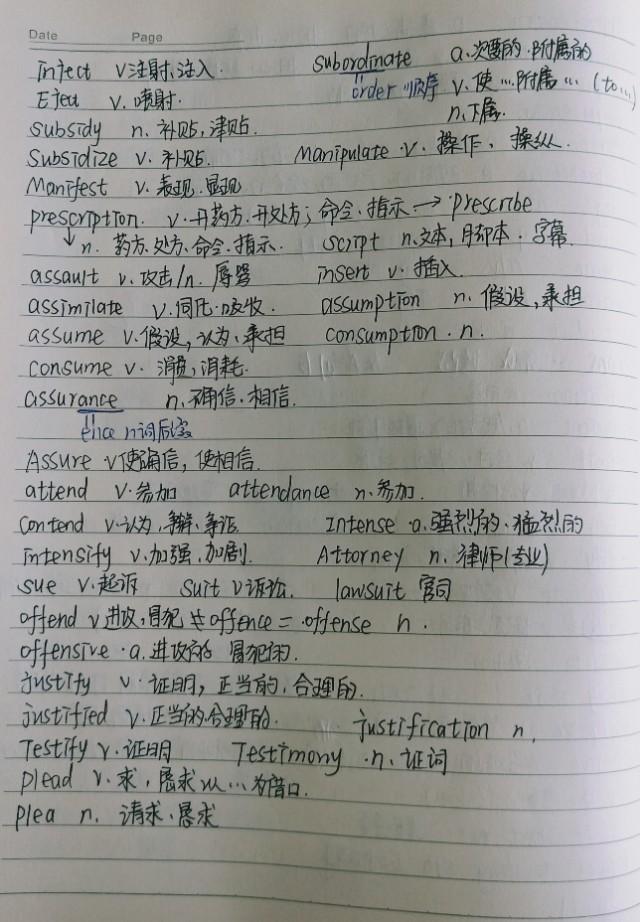 Date Page
Inject v.注射、注入. subordinate a.次要的.附属的
Eject v. 喷射. order 顺序 v. 使…附属… (to…)
n.下属.
subsidy n. 补贴,津贴.
Subsidize v. 补贴. Manipulate v. 操作、操纵.
Manifest v. 表现.显现
prescription. v.开药方.开处方;命令.指示. → prescribe
↓ n. 药方.处方.命令.指示. script n.文本,脚本.字幕
assault v. 攻击/n. 辱骂 insert v. 插入.
assimilate v.同化.吸收. assumption n. 假设,承担
assume v.假设,认为.承担 consumption. n.
consume v. 消费,消耗.
assurance n.确信.相信.
ence n词后缀
Assure v使确信,使相信.
attend v.参加 attendance n.参加.
Contend v.认为.争辩.争论 Intense a.强烈的.猛烈的
intensify v.加强.加剧. Attorney n. 律师(专业)
sue v.起诉 suit v诉讼. lawsuit 官司
offend v进攻,冒犯 offence = offense n.
offensive.a.进攻的 冒犯的.
justify v.证明,正当的.合理的.
justified v.正当的.合理的. justification n.
Testify v.证明 Testimony .n. 证词
plead v.求,恳求以…为借口.
plea n. 请求.恳求